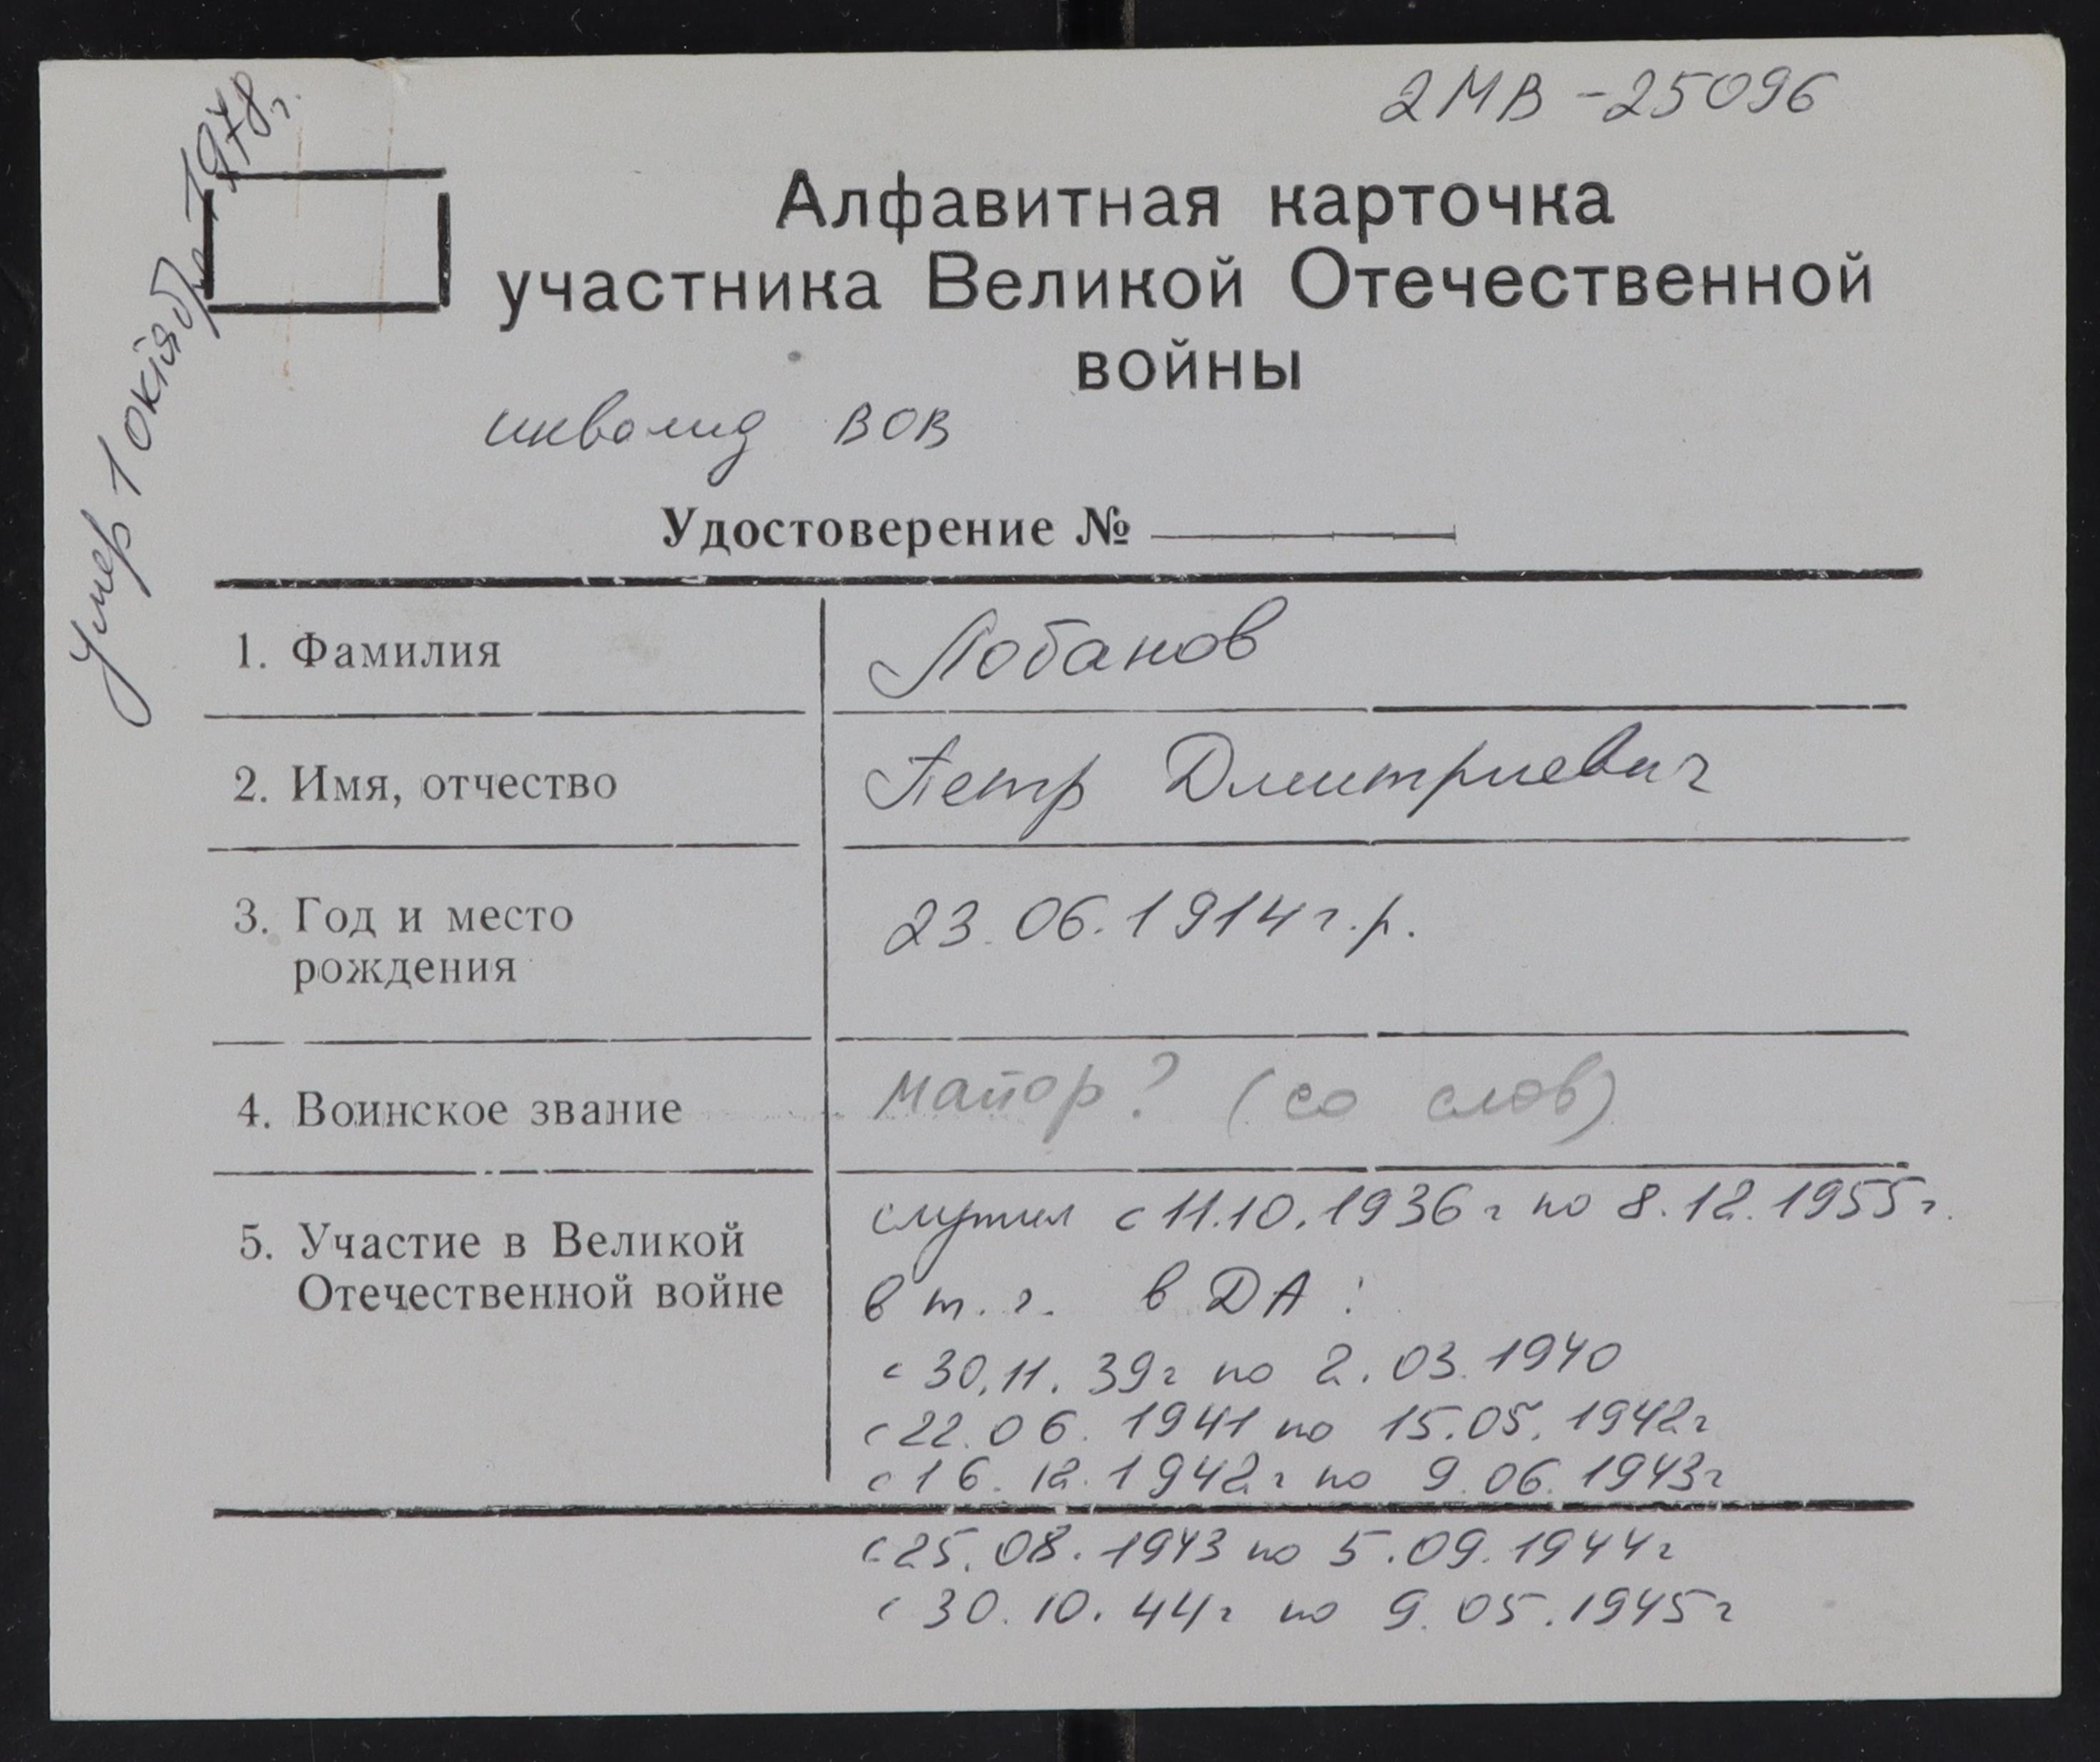 2МВ-25096
Умер 1 октября 1978г.
Алфавитная карточка
участника Великой Отечественной
войны
инвалид ВОВ
Удостоверение №
1. Фамилия
Лобанов
2. Имя, отчество
Петр Дмитриевич
3. Год и место
рождения
23.06.1914г.р.
4. Воинское звание
майор? (со слов)
5. Участие в Великой
Отечественной войне
служил с 11.10.1936г по 8.12.1955г.
в т.ч. в ДА:
с 30.11.39г по 2.03.1940
с 22.06.1941 по 15.05.1942г
с 16.12.1942г по 9.06.1943г
с 25.08.1943 по 5.09.1944г
с 30.10.44г по 9.05.1945г